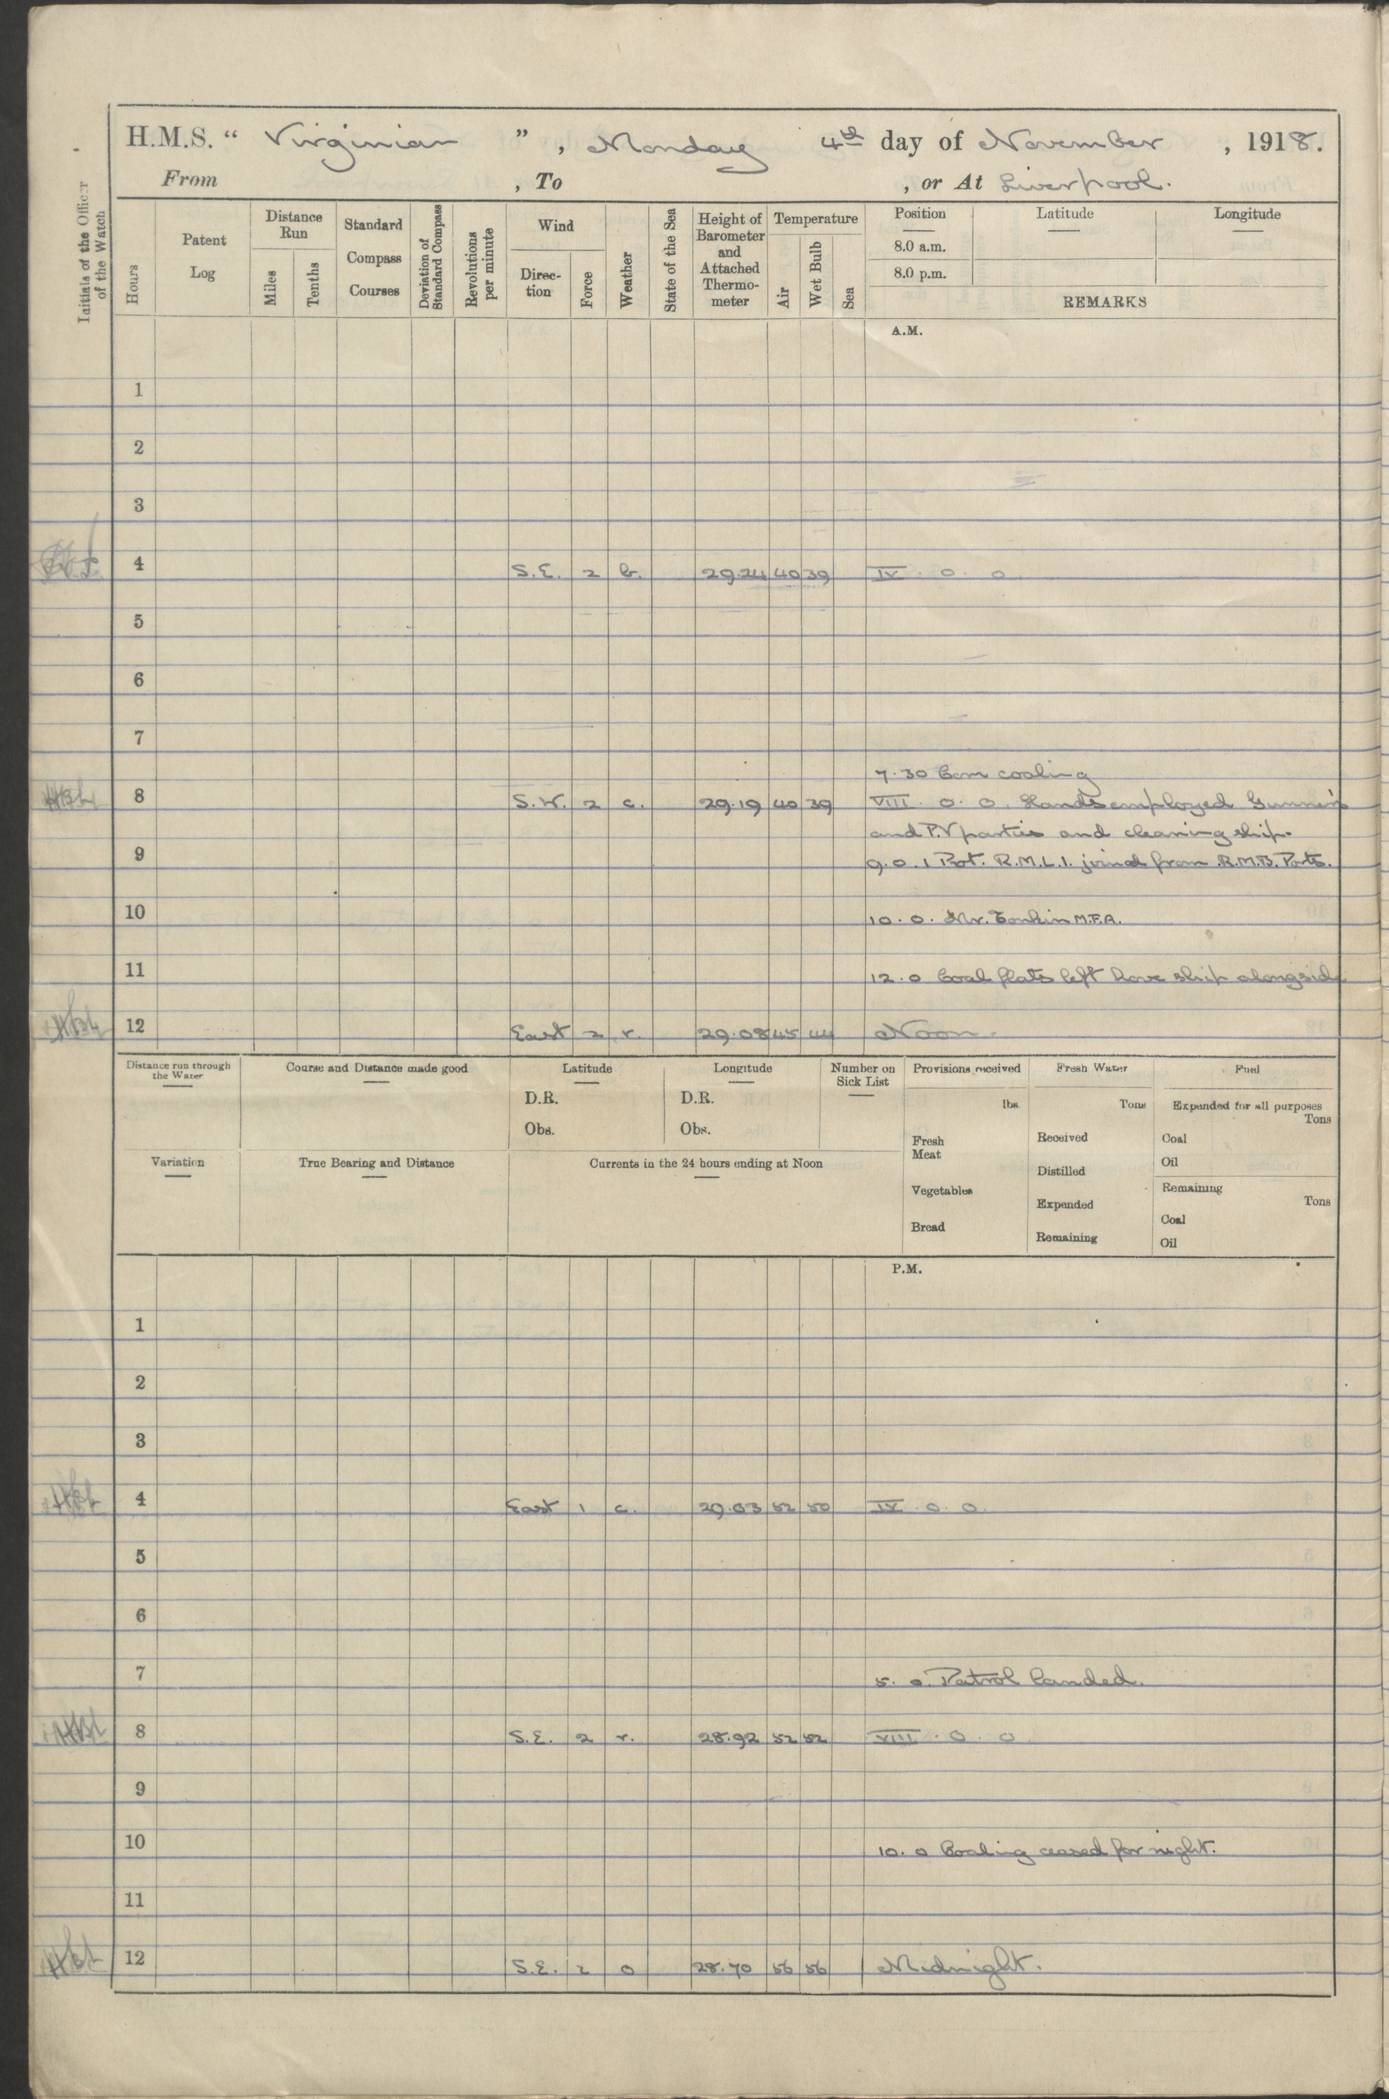 H.M.S. " Virginian ", Monday 4th day of November, 1918.
From , To , or At Liverpool.
Initials of the Officer of the Watch
Hours
Patent Log
Distance Run
Miles
Tenths
Standard Compass Courses
Deviation of Standard Compass
Revolutions per minute
Wind
Direc-tion
Force
Weather
State of the Sea
Height of Barometer and Attached Thermo-meter
Temperature
Air
Wet Bulb
Sea
Position Latitude Longitude
8.0 a.m.
8.0 p.m.
REMARKS
A.M.
1
2
3
4 S.E. 2 b. 29.24 40 39 IV . 0 . 0
5
6
7
7.30 Com coaling
8 S.W. 2 c. 29.19 40 39 VIII . 0 . 0. Hands employed Gunner's
and P.V parties and cleaning ship.
9 9.0. 1 Pvt. R.M.L.I. joined from R.M.B. Ports.
10 10.0. Mr. Tonkin M.F.A.
11 12.0 Coal flats left have ship alongside
12 East 2 r. 29.08 45 44 Noon.
Distance run through the Water
Course and Distance made good
Latitude
D.R.
Obs.
Longitude
D.R.
Obs.
Number on Sick List
Provisions received
lbs.
Fresh Meat
Vegetables
Bread
Fresh Water
Tons
Received
Distilled
Expended
Remaining
Fuel
Expended for all purposes
Tons
Coal
Oil
Remaining
Tons
Coal
Oil
Variation
True Bearing and Distance
Currents in the 24 hours ending at Noon
P.M.
1
2
3
4 East 1 c. 29.03 52 50 IV . 0 . 0.
5
6
7 5.0. Patrol landed.
8 S.E. 2 r. 28.92 52 52 VIII . 0 . 0
9
10 10.0 Coaling ceased for night.
11
12 S.E. 2 o 28.70 56 56 Midnight.